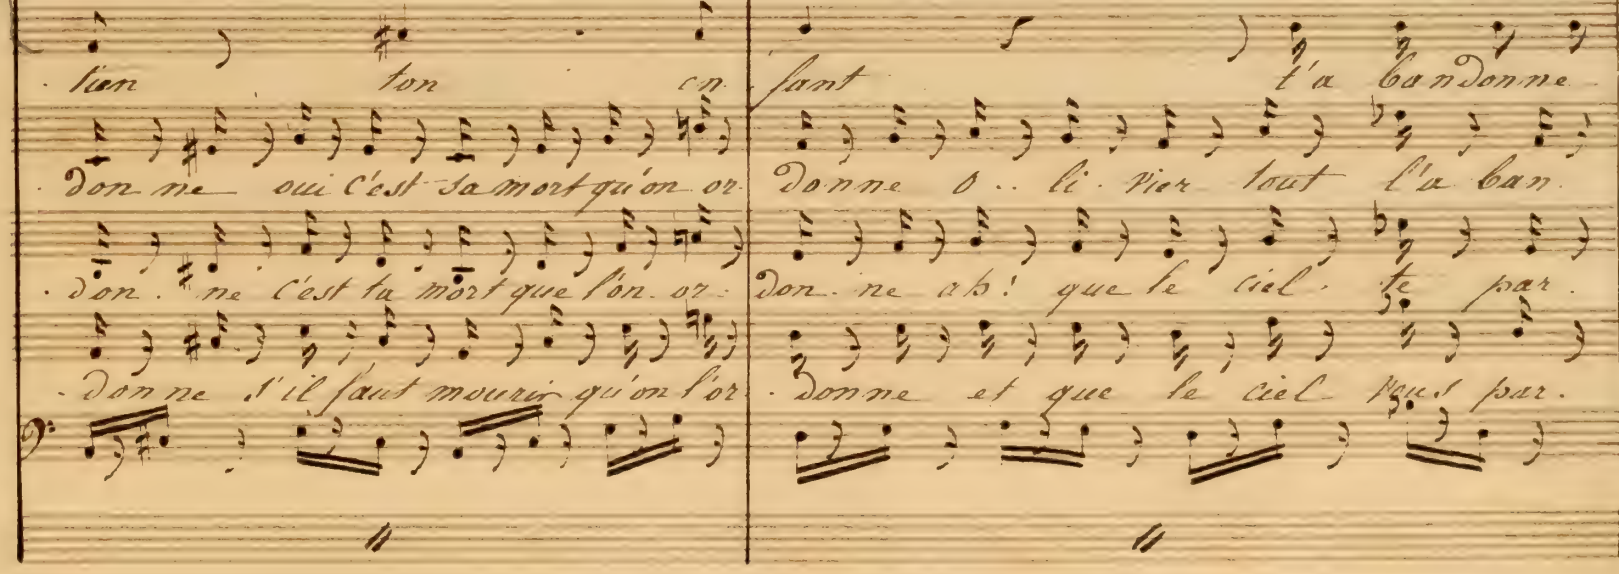 tien ton en fant t'a bandonne
don ne oui c'est sa mort qu'on or donne O.. li. vier tout l'a ban
don. ne c'est ta mort que l'on. or don. ne ah! que le ciel. te par.
donne s'il faut mourir qu'on l'or. donne et que le ciel vous par.